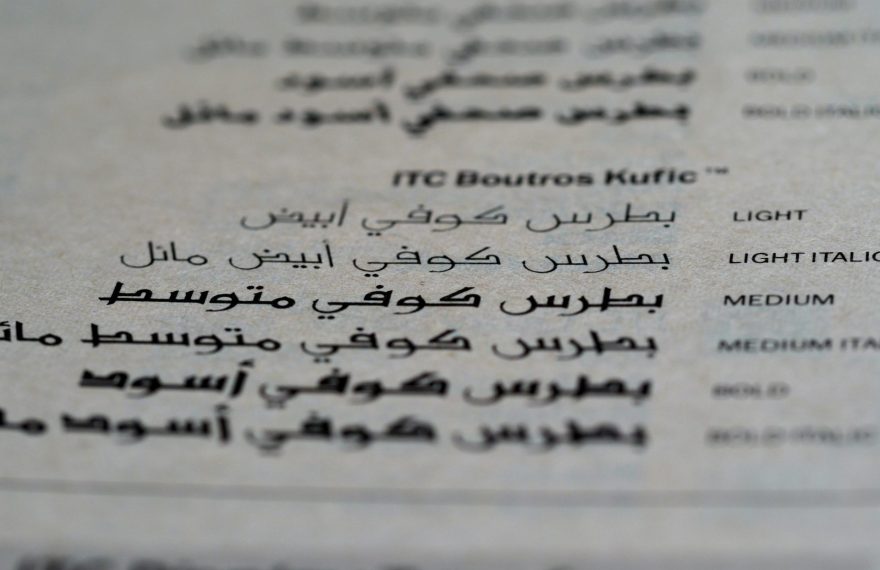 بطرس صحفي أسود BOLD
بطرس صحفي أسود مائل BOLD ITALIC
ITC Boutros Kufic™
بطرس كوفي أبيض LIGHT
بطرس كوفي أبيض مائل LIGHT ITALIC
بطرس كوفي متوسط MEDIUM
بطرس كوفي متوسط مائ MEDIUM ITA
بطرس كوفي أسود BOLD
بطرس كوفي أسود BOLD ITALIC